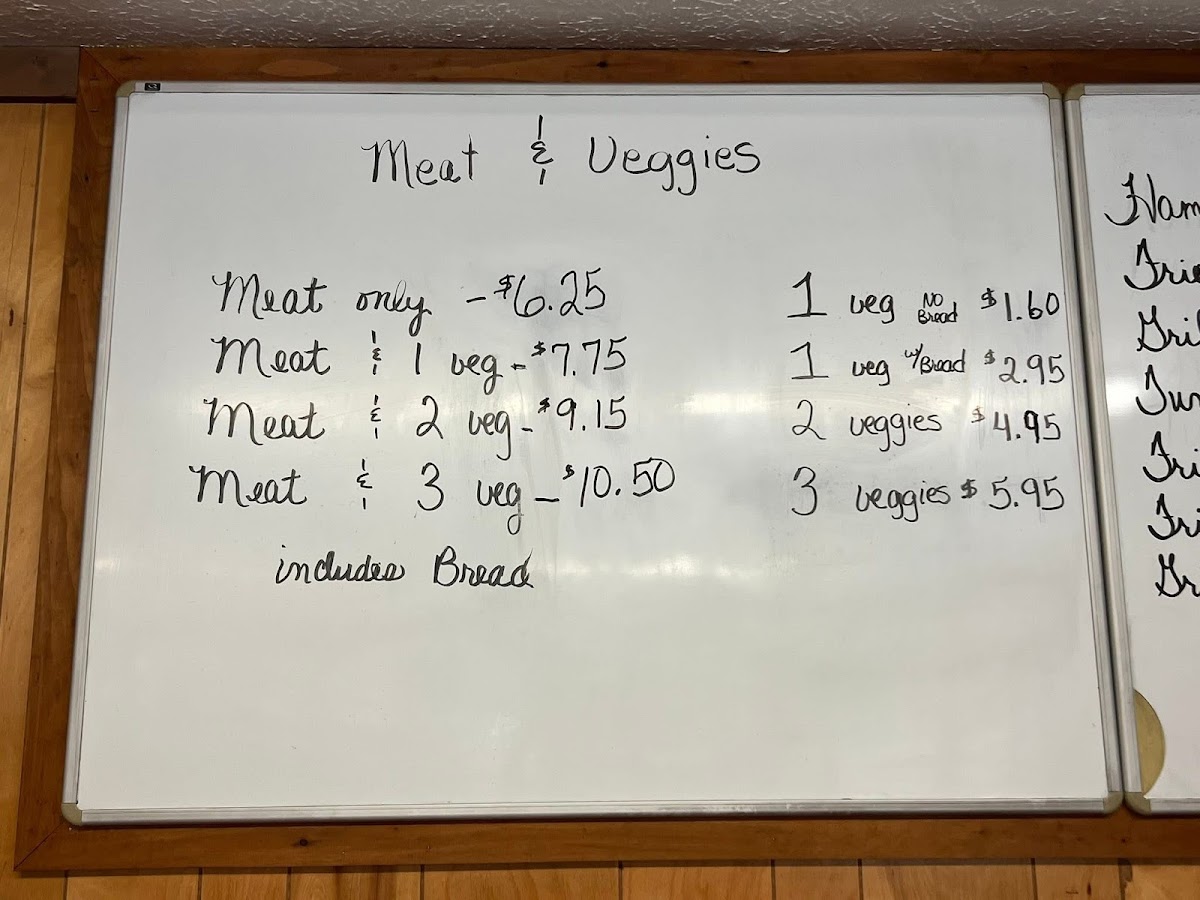 Meat & Veggies
Meat only - $6.25
Meat & 1 veg - $7.75
Meat & 2 veg - $9.15
Meat & 3 veg - $10.50
includes Bread
1 veg No Bread $1.60
1 veg w/Bread $2.95
2 veggies $4.95
3 veggies $5.95
Ham